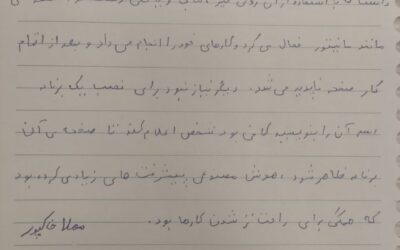 داستا ... با استفاده از آن روی میز ...
مانند مانیتور فعال می کرد و کارهای خود را انجام می داد و بعد از اتمام
کار صفحه ناپدید می شد. دیگر نیاز نبود برای نصب یک برنامه
اسم آن را بنویسید کافی بود شخص اعلام کند تا صفحه ی آن
برنامه ظاهر شود. هوش مصنوعی پیشرفت های زیادی کرده بود
که همگی برای راحت تر شدن کارها بود.
خاکپور